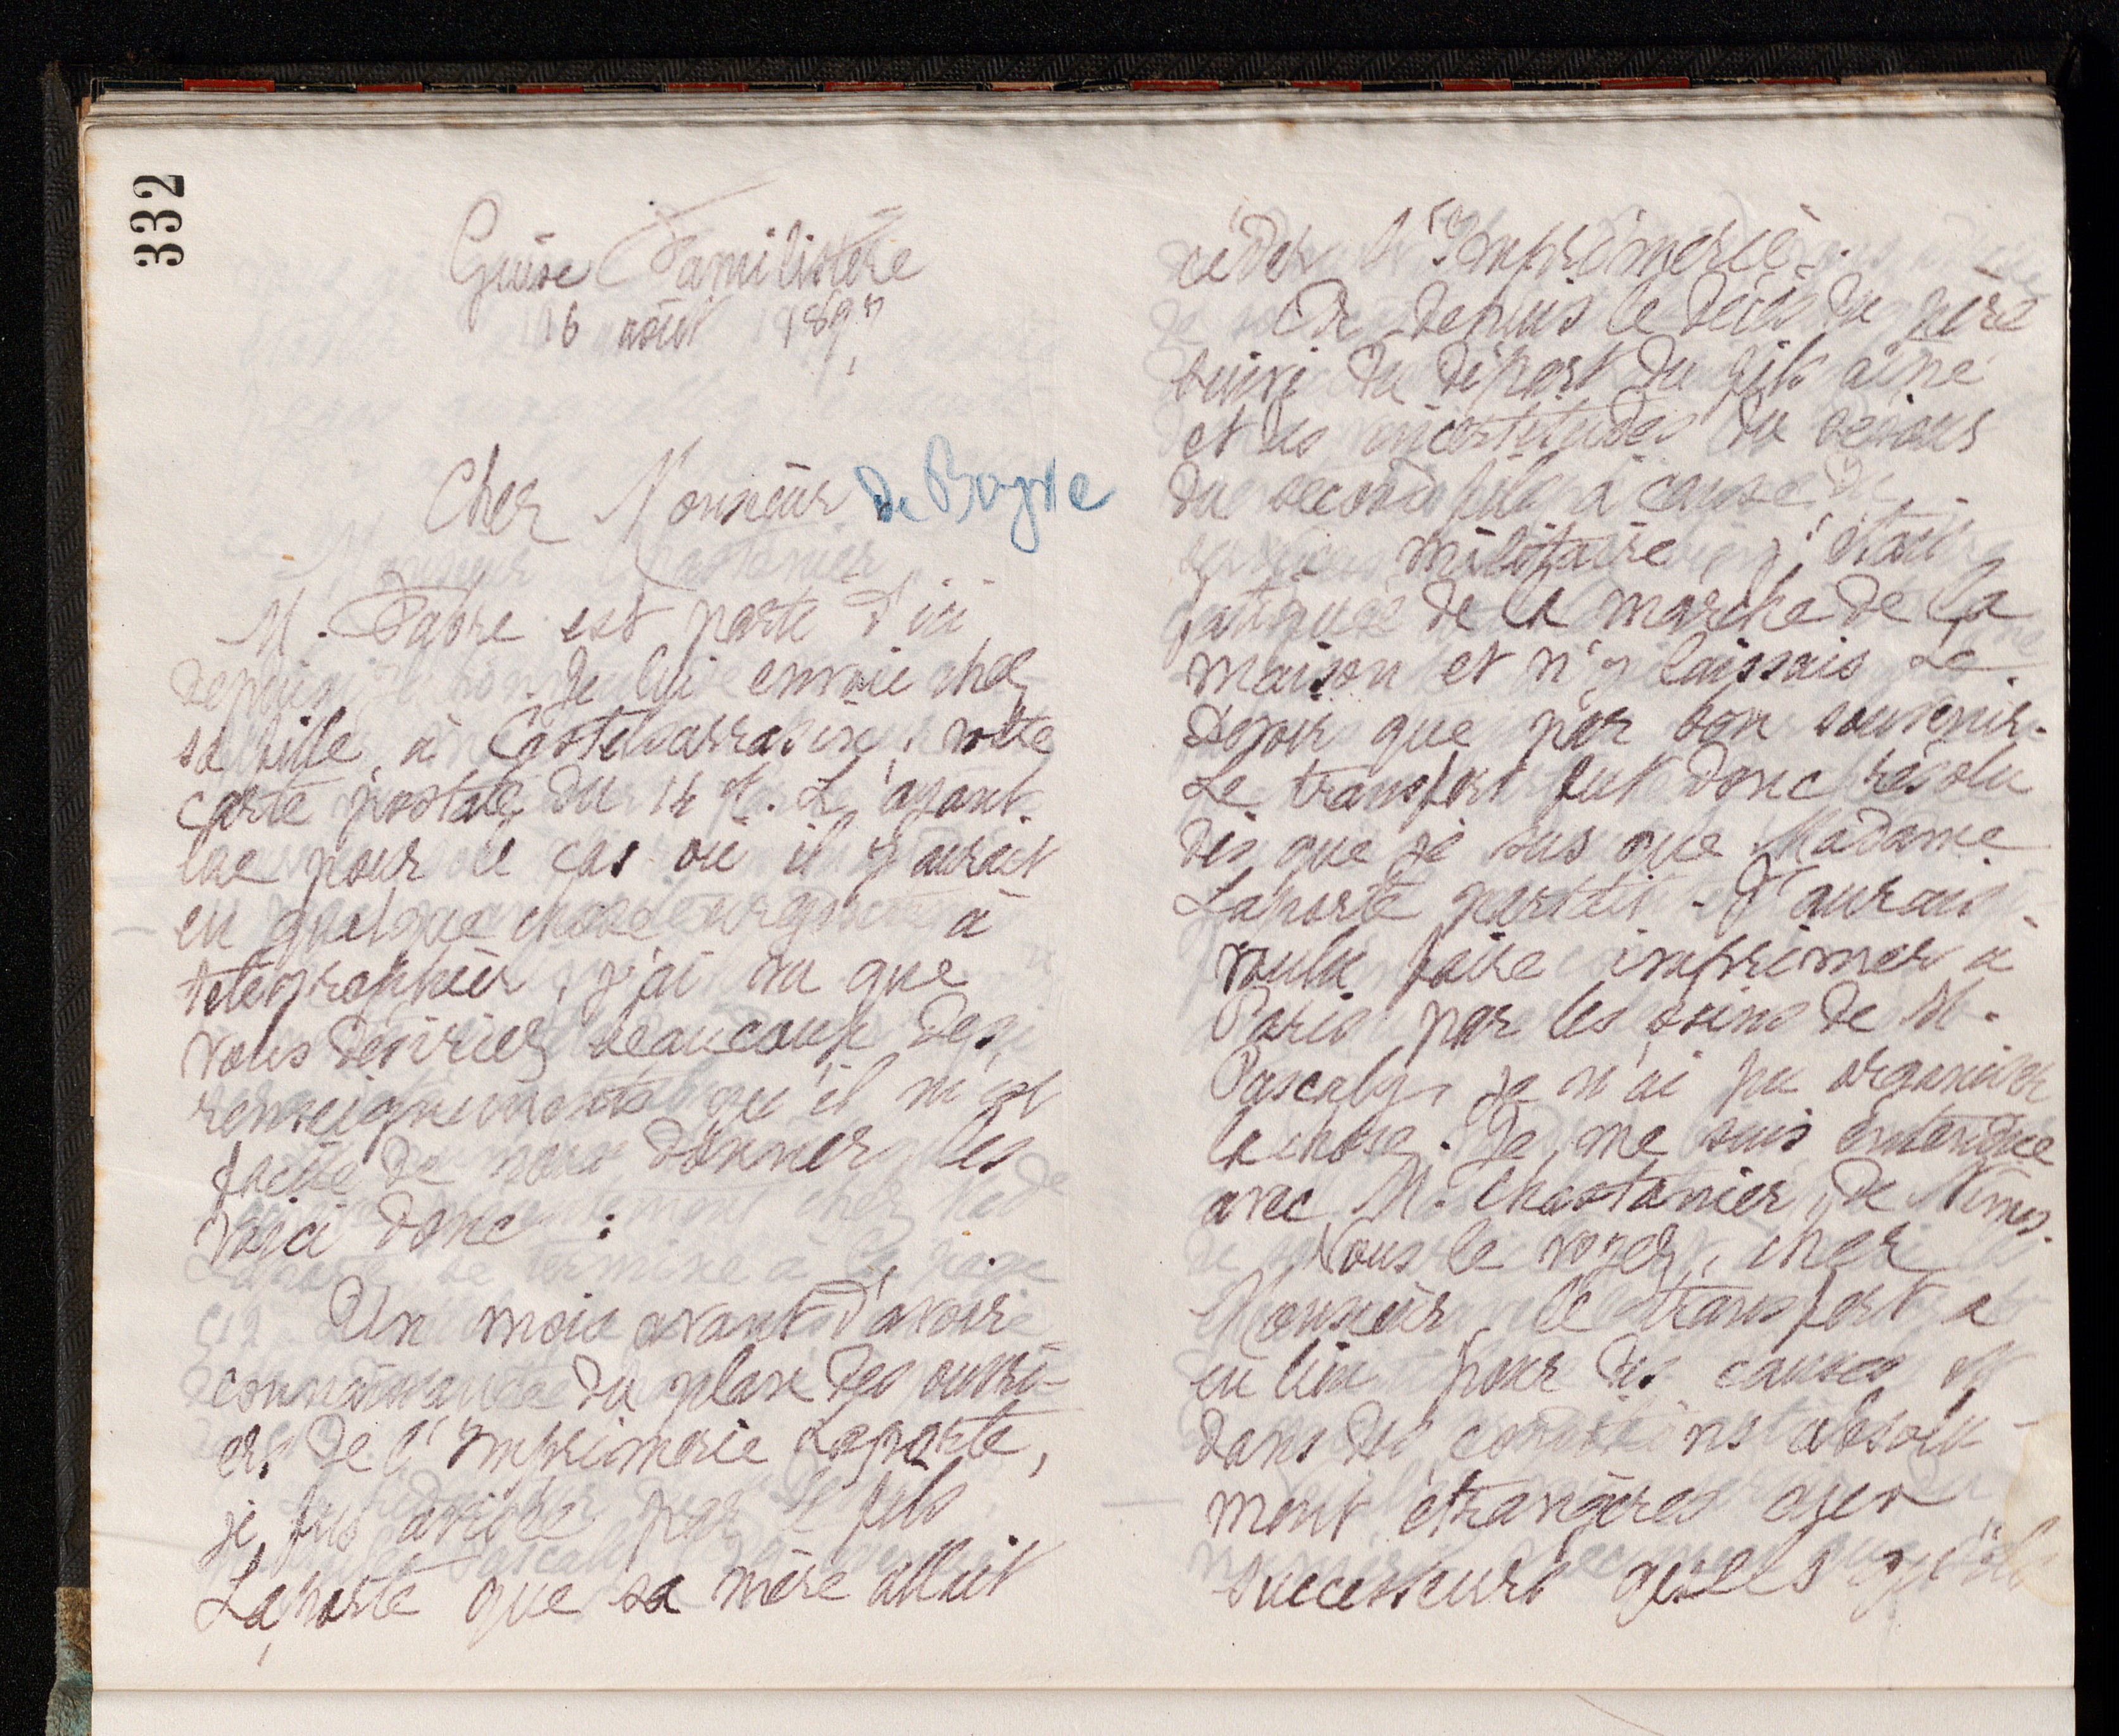 332
Guise Familistère
16 août 1897
Cher Monsieur de Boyve
M. Fabre est parti d'ici
depuis. Je lui envoie chez
sa fille, à Castelsarrasin, votre
carte postale du 14 ct. L'ayant
lue pour le cas où il y aurait
eu quelque chose urgent à
télégraphier, j'ai vu que
vous désiriez beaucoup des
renseignements qu'il m'est
facile de vous donner, les
voici donc :
Un mois avant d'avoir
connaissance du plan des ouvri-
ers de l'Imprimerie Laporte,
je fus avisée par le fils
Laporte que sa mère allait
céder l'Imprimerie.
Or depuis le décès du père
suivi du départ du fils aîné
et les incertitudes du
du second fils à cause du
militaire, j'étais
fatiguée de la marche de la
maison et n'y laissais Le
Devoir que par bon souvenir.
Le transfert fut donc résolu
dès que je sus que Madame
Laporte partait. J'aurais
voulu faire imprimer à
Paris par les soins de M.
Pascaly, je n'ai pu organiser
la chose. Je me suis entendue
avec M. Chastanier, de Nîmes.
Vous le voyez, cher
Monsieur, le transfert a
eu lieu pour des causes et
dans des conditions absolu-
ment étrangères aux
successeurs quels qu'ils